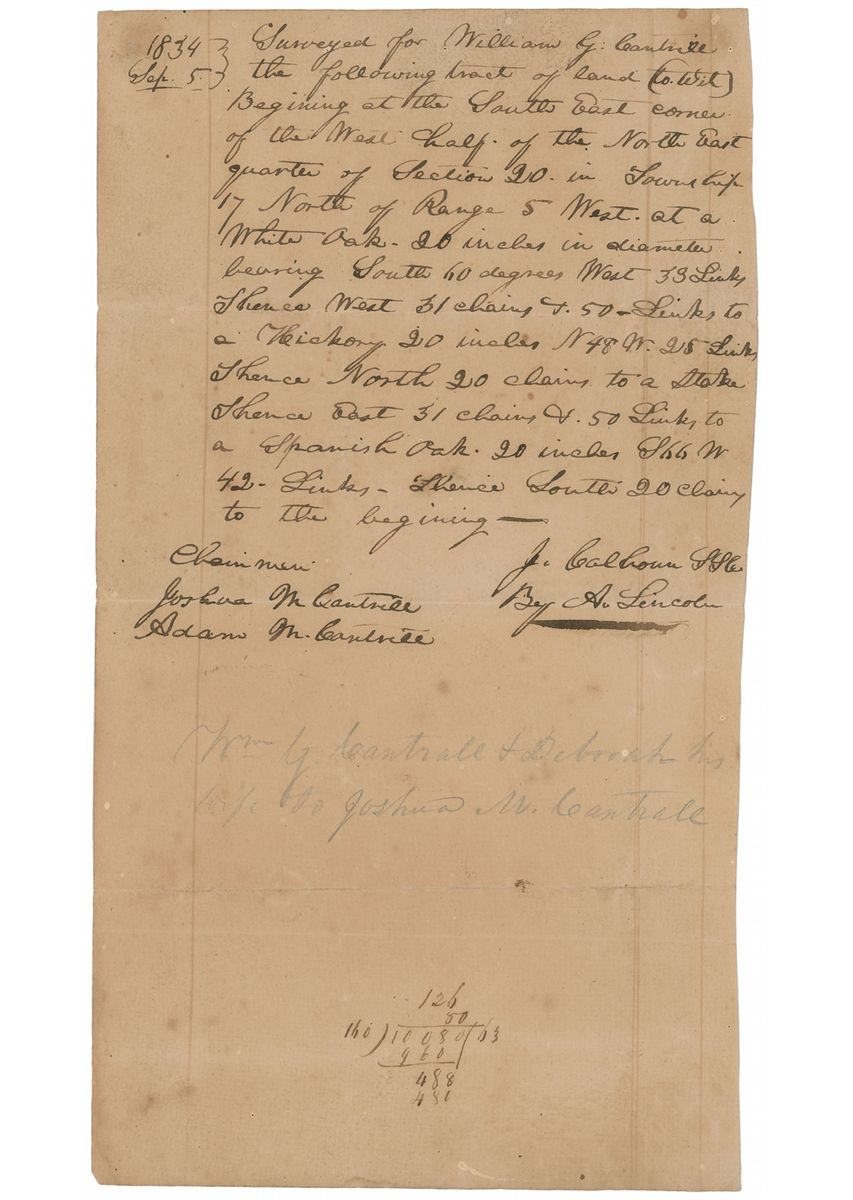 1834 } Surveyed for William G. Cantrill
Sep. 5. } the following tract of land (to. Wit)
Begining at the South East corner
of the West half. of the North East
quarter of Section 20. in Township
17 North of Range 5 West. at a
White Oak - 20 inches in diameter
bearing South 60 degrees West 33 Links
Thence West 31 chains &. 50 - Links to
a Hickory 20 inches N 48 W. 25 Links
Thence North 20 chains to a Stake
Thence East 31 chains &. 50 Links to
a Spanish Oak. 20 inches S 66 W
42 - Links - Thence South 20 chains
to the begining —
Chainmen
J. Calhoun S.S.C.
Joshua M Cantrill
By A. Lincoln
Adam M. Cantrill
Wm G. Cantrall & Deborah his
wife to Joshua M. Cantrall
126
80
160 ) 10080 ( 63
960
488
480